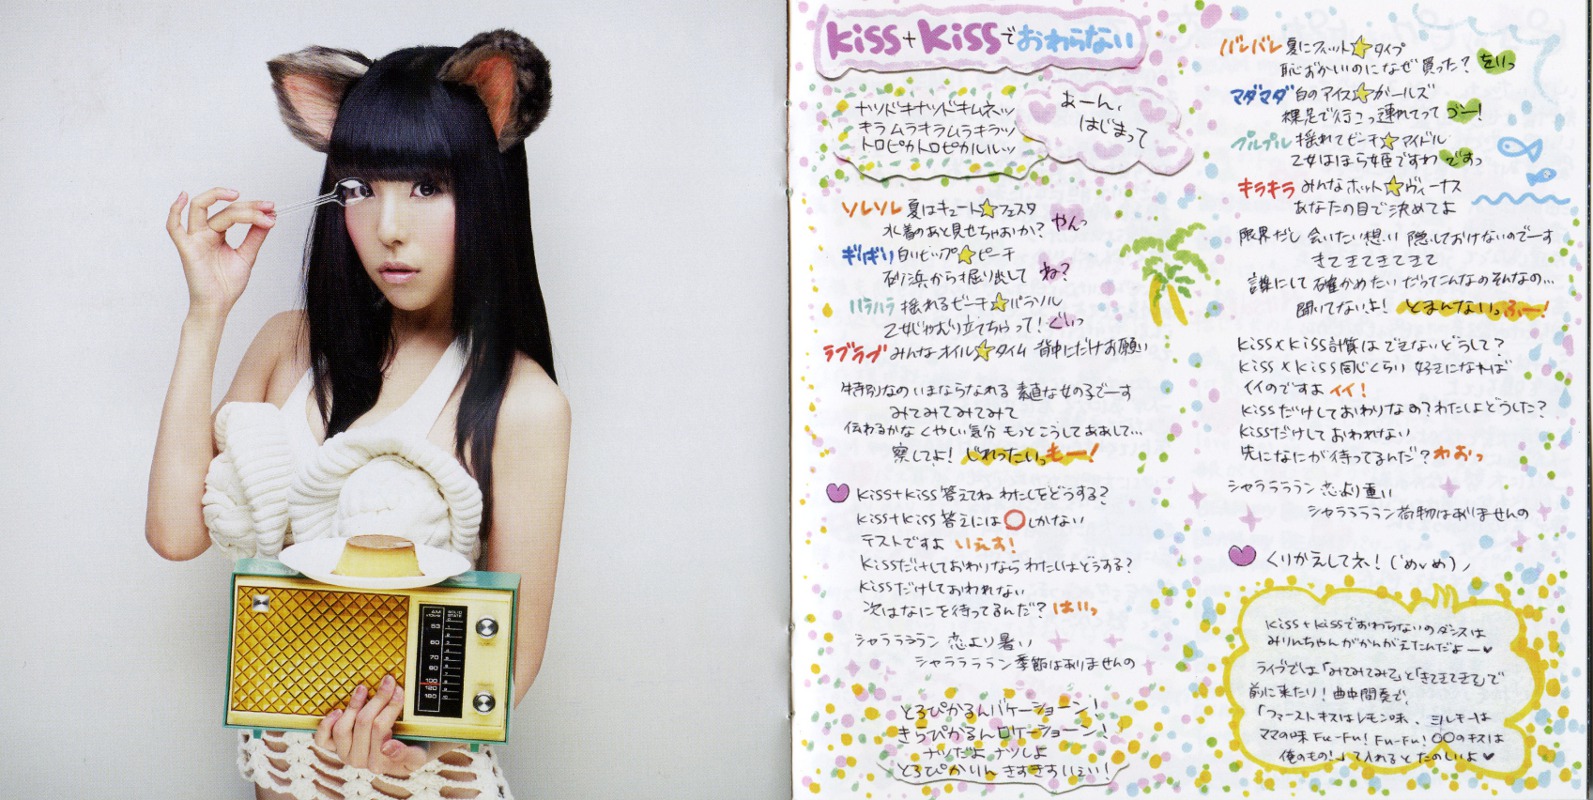 AM
SOLID STATE
53
60
70
80
100
120
160
Kiss+Kissでおわらない
ナツドキナツドキムネッ
キラムラキラムラキラッ
トロピカトロピカルルッ
あーん、
はじまって
ソレソレ 夏はキュート☆フェスタ
水着のあと見せちゃおっか? やんっ
ギリギリ 白いヒップ☆ピーチ
砂浜から掘り出して ね?
ハラハラ 揺れるビーチ☆パラソル
乙女じゃおり立てちゃって! ぐいっ
ラブラブ みんなオイル☆タイム 背中にだけお願い
特別なの いまならなれる 素直な女の子でーす
みてみてみてみて
伝わるかな くやしい気分 もっとこうしてああして…
察してよ! じれったいっもー!
Kiss+Kiss 答えてね わたしをどうする?
Kiss+Kiss 答えには○しかない
テストですよ いえす!
Kissだけしておわりなら わたしはどうする?
Kissだけしておわれない
次はなにを待ってるんだ? はいっ
シャラララララン 恋より暑い
シャラララララン 季節はありませんの
とろぴかるんバケーショーン!
きらぴかるんロケーショーン!
ナツだよ ナツしよ
とろぴかりん きすきすいえい!
バレバレ 夏にフィット☆タイプ
恥ずかしいのになぜ買った? をいっ
マダマダ 白のアイス☆ガールズ
裸足で行こっ連れてって ゴー!
プルプル 揺れてピンチ☆アイドル
乙女はほら姫ですわ ですっ
キラキラ みんなホット☆ヴィーナス
あなたの目で決めてよ
限界だし 会いたい想い 隠しておけないのでーす
きてきてきてきて
謎にして 確かめたい だってこんなのそんなの…
聞いてないよ! とまんないっふー!
Kiss×Kiss計算は できないどうして?
Kiss×Kiss同じくらい 好きになれば
イイのですよ イイ!
Kissだけしておわりなの?わたしよどうした?
Kissだけしておわれない
先になにが待ってるんだ? わおっ
シャラララララン 恋より重い
シャラララララン 荷物はありませんの
くりかえしてネ!
Kiss+Kissでおわらないのダンスは
みりんちゃんがかんがえたんだよー♥
ライブでは「みてみてみて」と「きてきてきて」で
前に来たり!曲中間奏で、
「ファーストキスはレモン味、ミルキーは
ママの味 Fu-Fu! Fu-Fu! ○○のキスは
俺のもの!」って入れるとたのしいよ♥